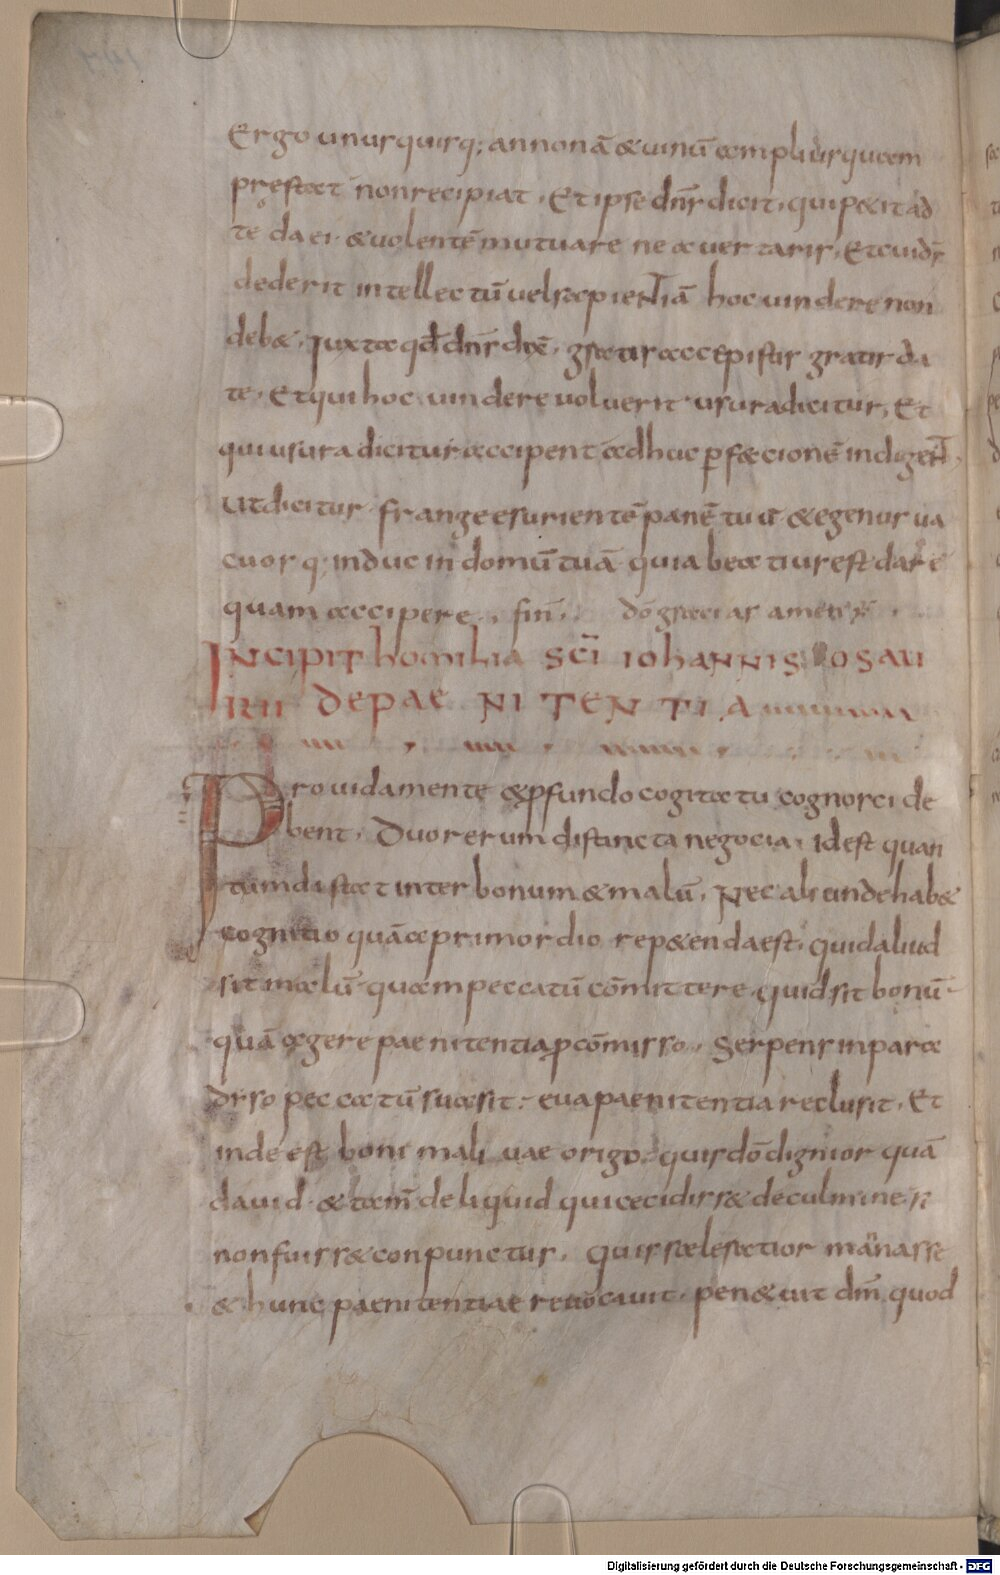 Ergo unusquisq; annonā & uinū amplius quam
pręstat non recipiat. Et ipse dn̄s dicit. qui p&it ad
te da ei. & uolentē mutuare ne auertaris. Et cui dr̄
dederit intellectū uel sapientiā hoc uindere non
deb&. Iuxta qđ dn̄s dix̄. gratis accepistis gratis da
te. Et qui hoc uindere uoluerit usura dicitur. Et
qui usura dicitur accipent adhuc ꝑfectionē indigent.
Ut dicitur frange esurientē panē tuū & egenus ua
cuosq; induc in domū tuā quia beatius est dare
quam accipere. fin̄. dō gracias amen
INCIPIT homilia SC̄I IOHANNIS OSAU
RII DE PAENITENTIA
Prouida mente & ꝓfundo cogitatu cognosci de
bent. Duo rerum distincta negocia. Id est quan
tum distat inter bonum & malū. Nec aliunde hab&
cognitio quā a primordio repetenda est. quid aliud
sit malū quam peccatū cōmittere. quid sit bonū
quā agere paenitentia ꝓ cōmisso. Serpens in para
dyso peccatū suasit. eua paenitentia reclusit. Et
inde est boni maliuae origo. quis dō dignior quā
dauid & tam̄ deliquid qui cecidiss& de culmine. si
non fuiss& conpunctus. quis scelesatior mānasse
& hunc paenitentiae reuocauit. penetuit dm̄ quod
Digitalisierung gefördert durch die Deutsche Forschungsgemeinschaft - DFG